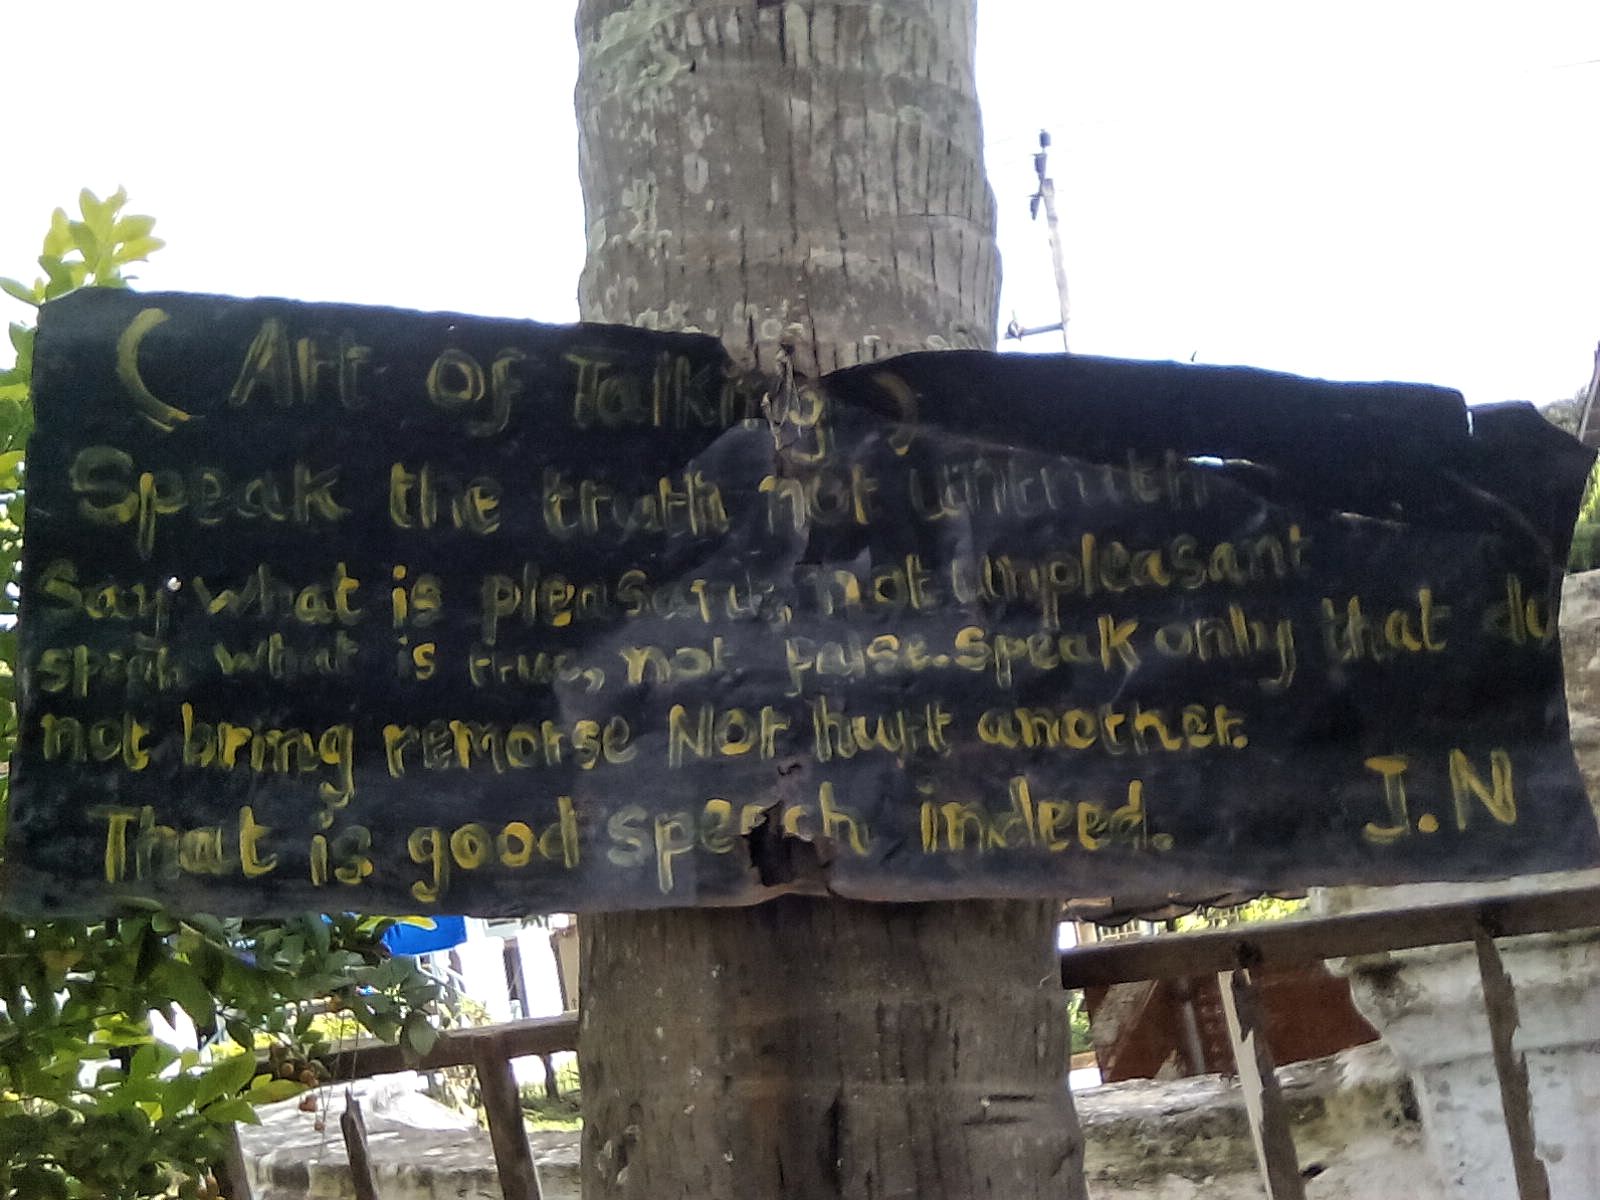 ( Art of Talking )
Speak the truth not untruth
Say what is pleasant, not unpleasant
speak what is true, not false. Speak only that do
not bring remorse Nor hurt another.
That is good speech indeed.
J.N